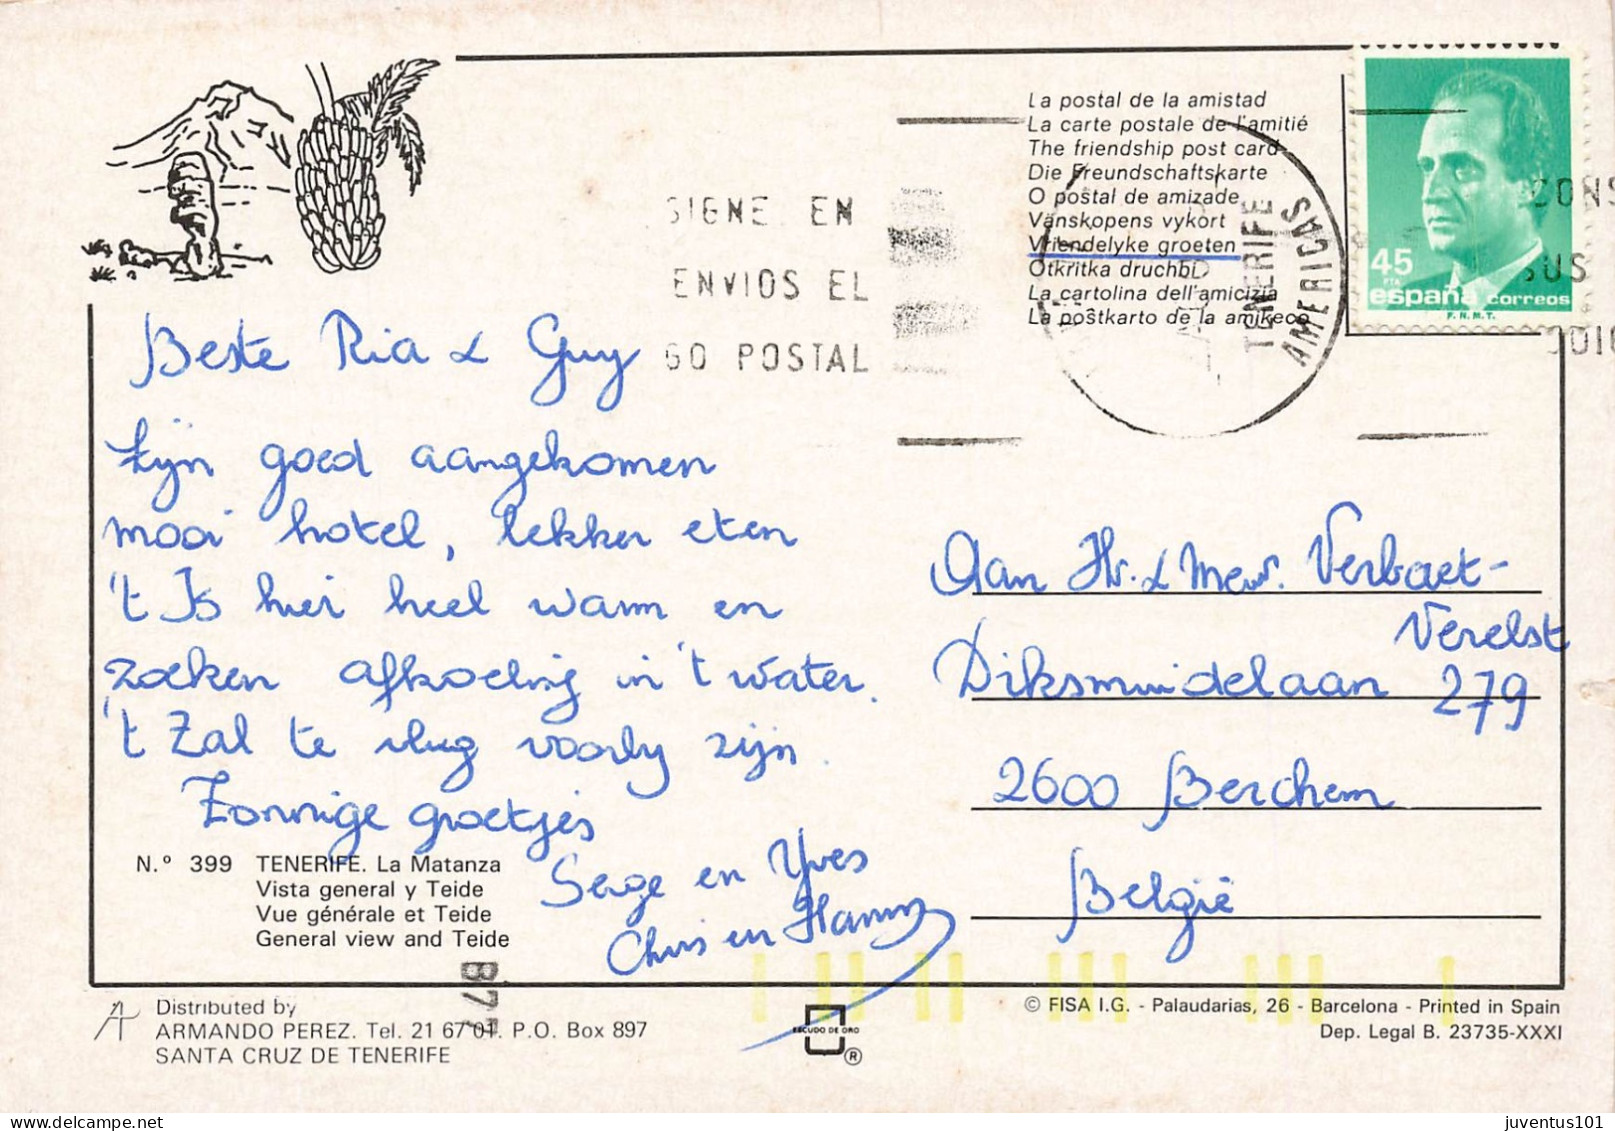 La postal de la amistad
La carte postale de l'amitié
The friendship post card
Die Freundschaftskarte
O postal de amizade
Vänskopens vykort
Vriendelyke groeten
Otkritka druchbi
La cartolina dell'amicizia
La postkarto de la amikeco
SIGNE EN
ENVIOS EL
GO POSTAL
TENERIFE
AMERICAS
CONS
SUS
45
PTA
españa correos
F.N.M.T.
Beste Ria & Guy
Zijn goed aangekomen
mooi hotel, lekker eten
't Is hier heel warm en
zoeken afkoeling in 't water.
't Zal te vlug voorby zijn.
Zonnige groetjes
Serge en Yves
Chris en
Aan Hr. & Mevr. Verbaet-
Verelst
Diksmuidelaan 279
2600 Berchem
België
N.º 399 TENERIFE. La Matanza
Vista general y Teide
Vue générale et Teide
General view and Teide
B75
Distributed by
ARMANDO PEREZ. Tel. 21 67 01. P.O. Box 897
SANTA CRUZ DE TENERIFE
ESCUDO DE ORO
®
© FISA I.G. - Palaudarias, 26 - Barcelona - Printed in Spain
Dep. Legal B. 23735-XXXI
juventus101